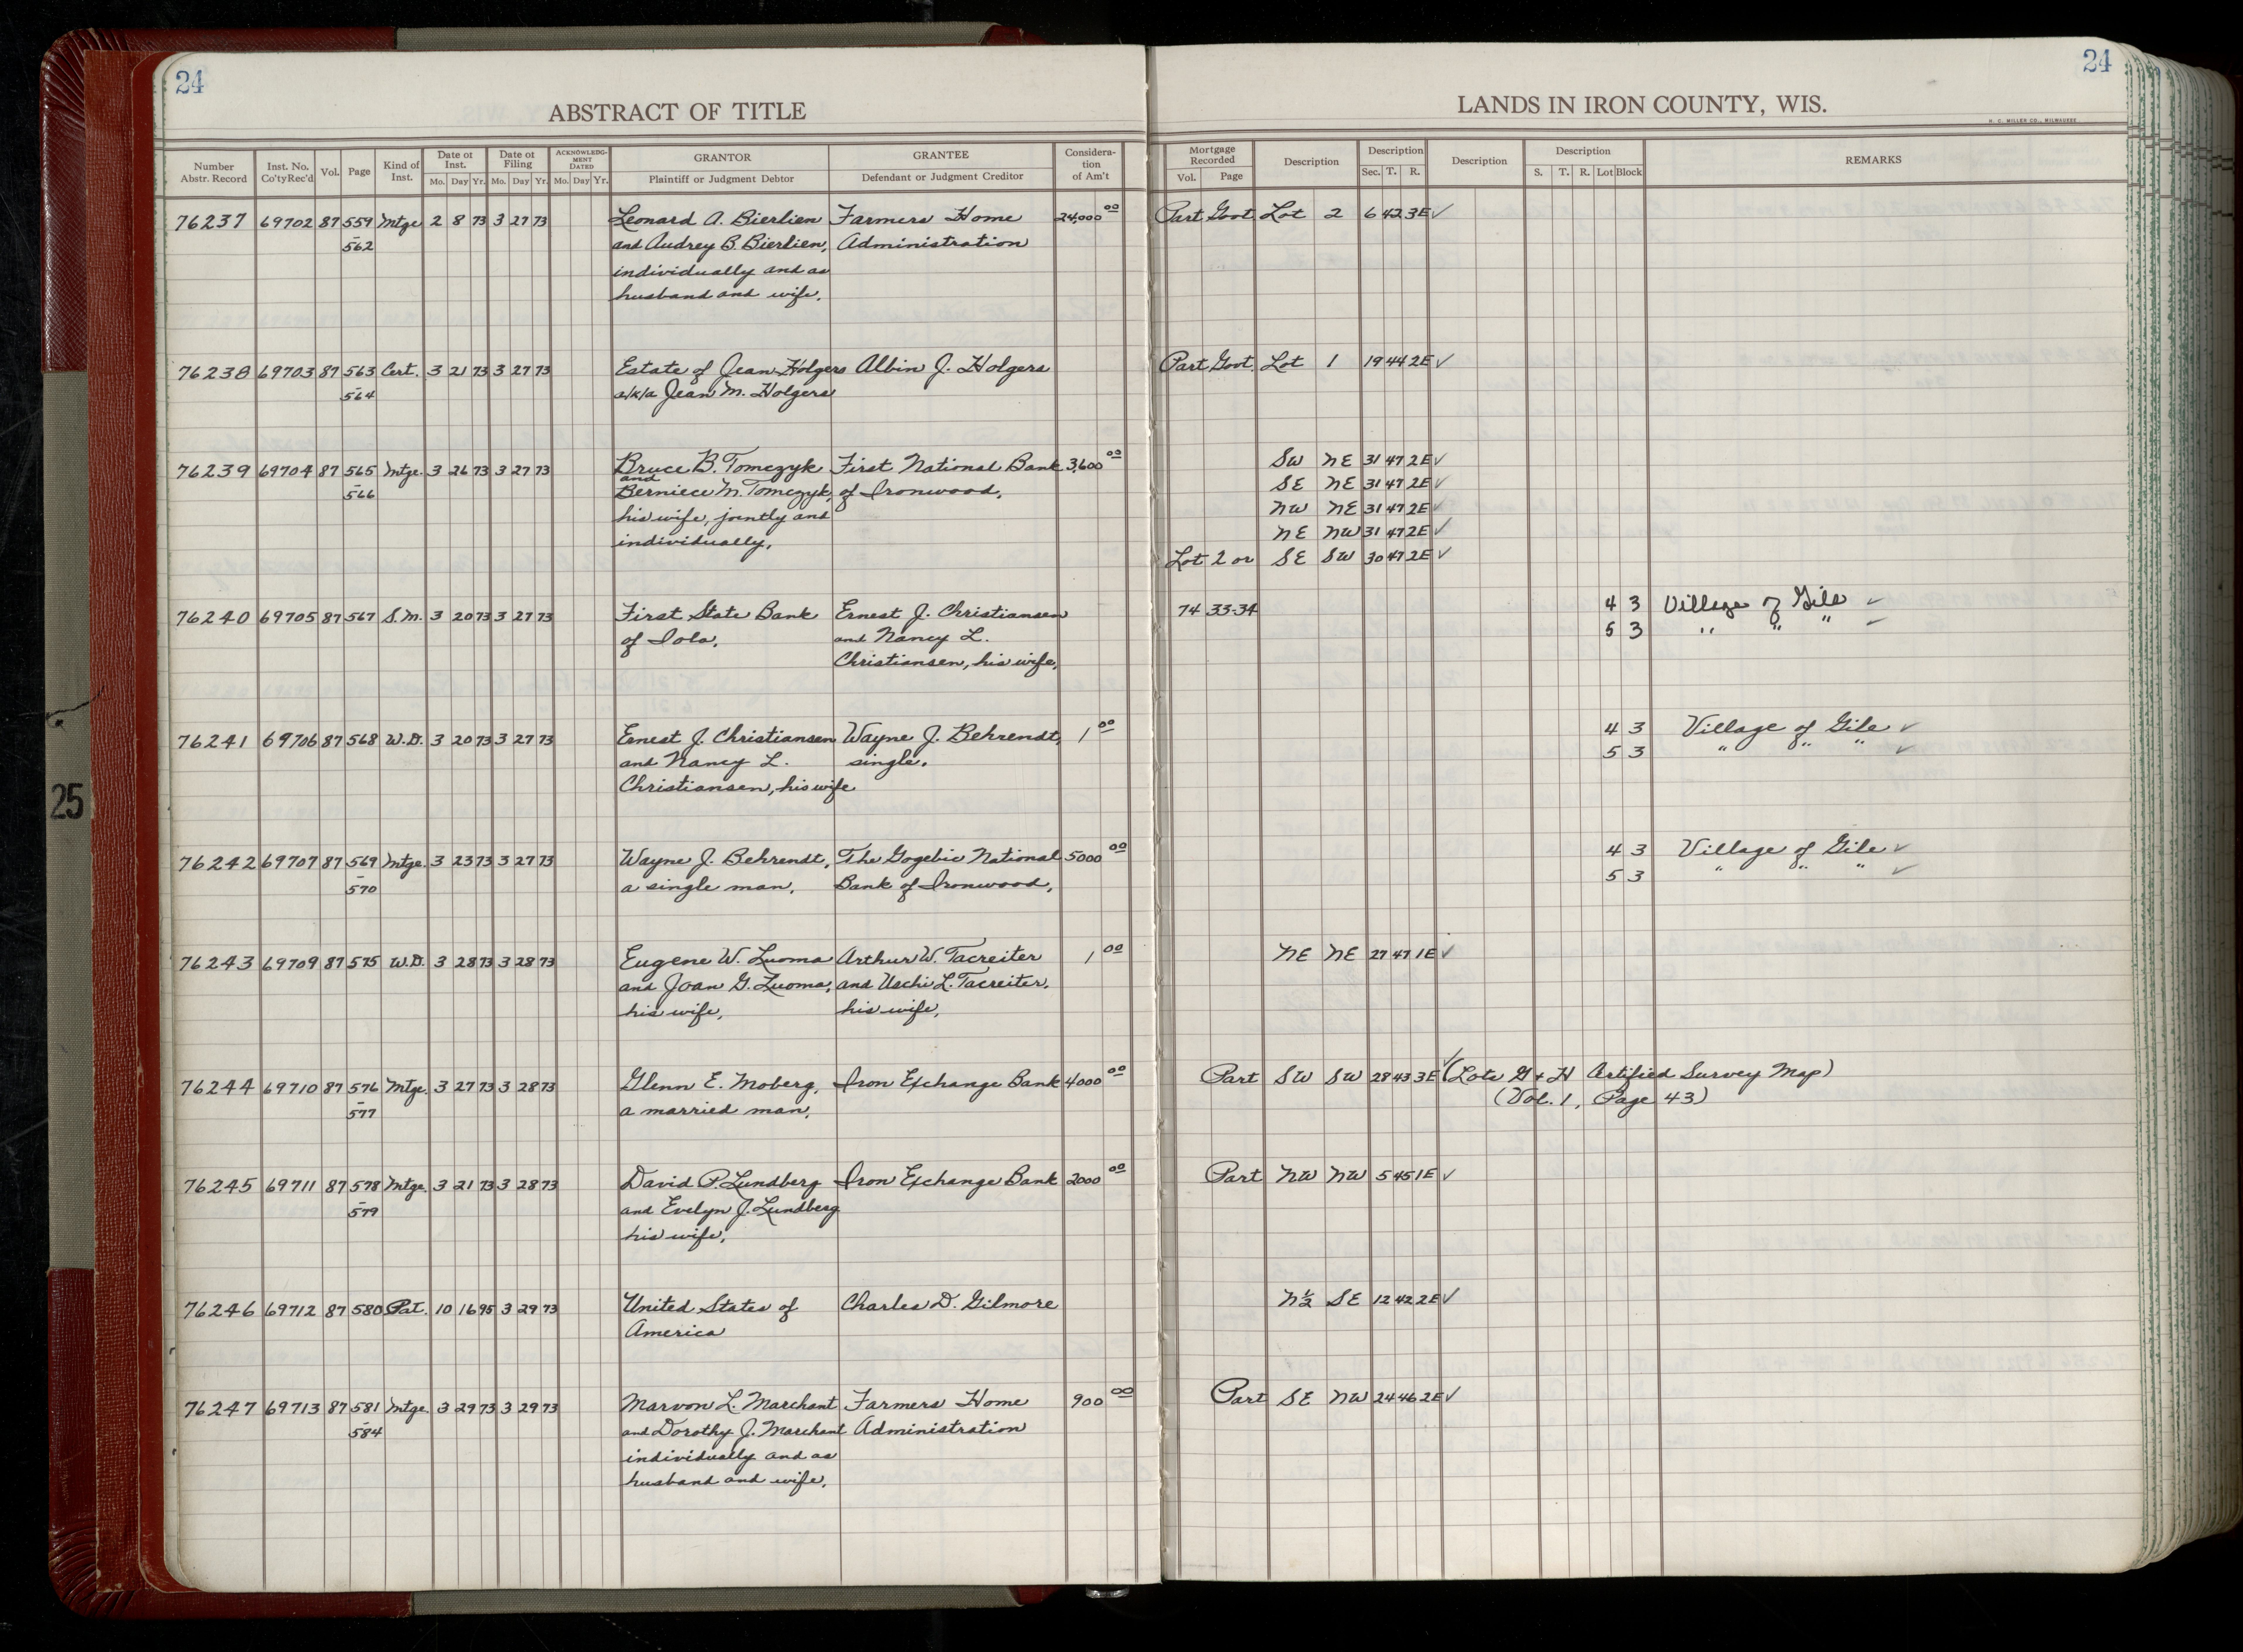 24
24
ABSTRACT OF TITLE
LANDS IN IRON COUNTY, WIS.
H. C. MILLER CO., MILWAUKEE
Number Abstr. Record Inst. No. Co'ty Rec'd Vol. Page Kind of Inst. Date of Inst. Mo. Day Yr. Date of Filing Mo. Day Yr. ACKNOWLEDG-MENT DATED Mo. Day Yr. GRANTOR Plaintiff or Judgment Debtor GRANTEE Defendant or Judgment Creditor Considera-tion of Am't Mortgage Recorded Vol. Page Description Description Sec. T. R. Description Description S. T. R. Lot Block REMARKS
76237 69702 87 559 Mtge 2 8 73 3 27 73 Leonard A. Bierlien Farmers Home 24,000 00 Part Govt Lot 2 6 42 3E ✓
- 562 and Audrey B. Bierlien, Administration
individually and as
husband and wife,
76238 69703 87 563 Cert. 3 21 73 3 27 73 Estate of Jean Holgers Albin J. Holgers Part Govt. Lot 1 19 44 2E ✓
- 564 a/k/a Jean M. Holgers
76239 69704 87 565 Mtge. 3 26 73 3 27 73 Bruce B. Tomczyk First National Bank 3,600 00 SW NE 31 47 2E ✓
and
- 566 Berniece M. Tomczyk, of Ironwood, SE NE 31 47 2E ✓
his wife, jointly and NW NE 31 47 2E ✓
individually, NE NW 31 47 2E ✓
Lot 2 or SE SW 30 47 2E ✓
76240 69705 87 567 S.M. 3 20 73 3 27 73 First State Bank Ernest J. Christiansen 74 33-34 4 3 Village of Gile ✓
of Iola, and Nancy L. 5 3 " " " ✓
Christiansen, his wife,
76241 69706 87 568 W.D. 3 20 73 3 27 73 Ernest J. Christiansen Wayne J. Behrendt, 1 00 4 3 Village of Gile ✓
and Nancy L. single. 5 3 " " " ✓
Christiansen, his wife
76242 69707 87 569 Mtge. 3 23 73 3 27 73 Wayne J. Behrendt, The Gogebic National 5000 00 4 3 Village of Gile ✓
- 570 a single man, Bank of Ironwood, 5 3 " " " ✓
76243 69709 87 575 W.D. 3 28 73 3 28 73 Eugene W. Luoma Arthur W. Tacreiter 1 00 NE NE 27 47 1E ✓
and Joan G. Luoma, and Uschi L. Tacreiter,
his wife, his wife,
76244 69710 87 576 Mtge. 3 27 73 3 28 73 Glenn E. Moberg, Iron Exchange Bank 4000 00 Part SW SW 28 43 3E ✓ (Lots G + H Certified Survey Map)
- 577 a married man, (Vol. 1, Page 43)
76245 69711 87 578 Mtge. 3 21 73 3 28 73 David P. Lundberg Iron Exchange Bank 2000 00 Part NW NW 5 45 1E ✓
- 579 and Evelyn J. Lundberg
his wife,
76246 69712 87 580 Pat. 10 16 95 3 29 73 United States of Charles D. Gilmore N½ SE 12 42 2E ✓
America
76247 69713 87 581 Mtge. 3 29 73 3 29 73 Marvon L. Marchant Farmers Home 900 00 Part SE NW 24 46 2E ✓
- 584 and Dorothy J. Marchant Administration
individually and as
husband and wife,
25